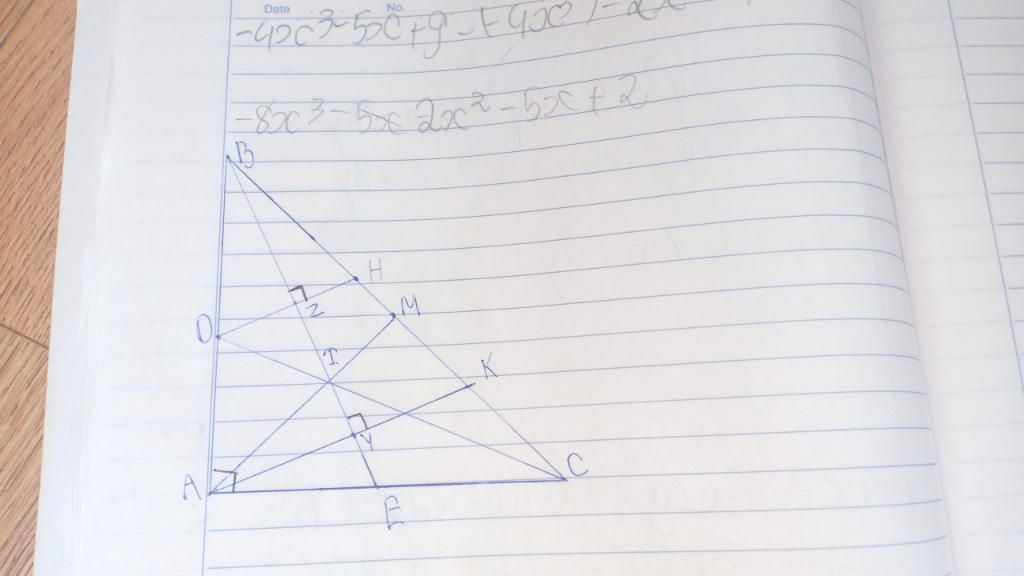 Date No.
-4x³-5x+9-(-4x³)-2x
-8x³-5x 2x²-5x+2
B
H
Z
M
D
I
K
Y
A
C
E